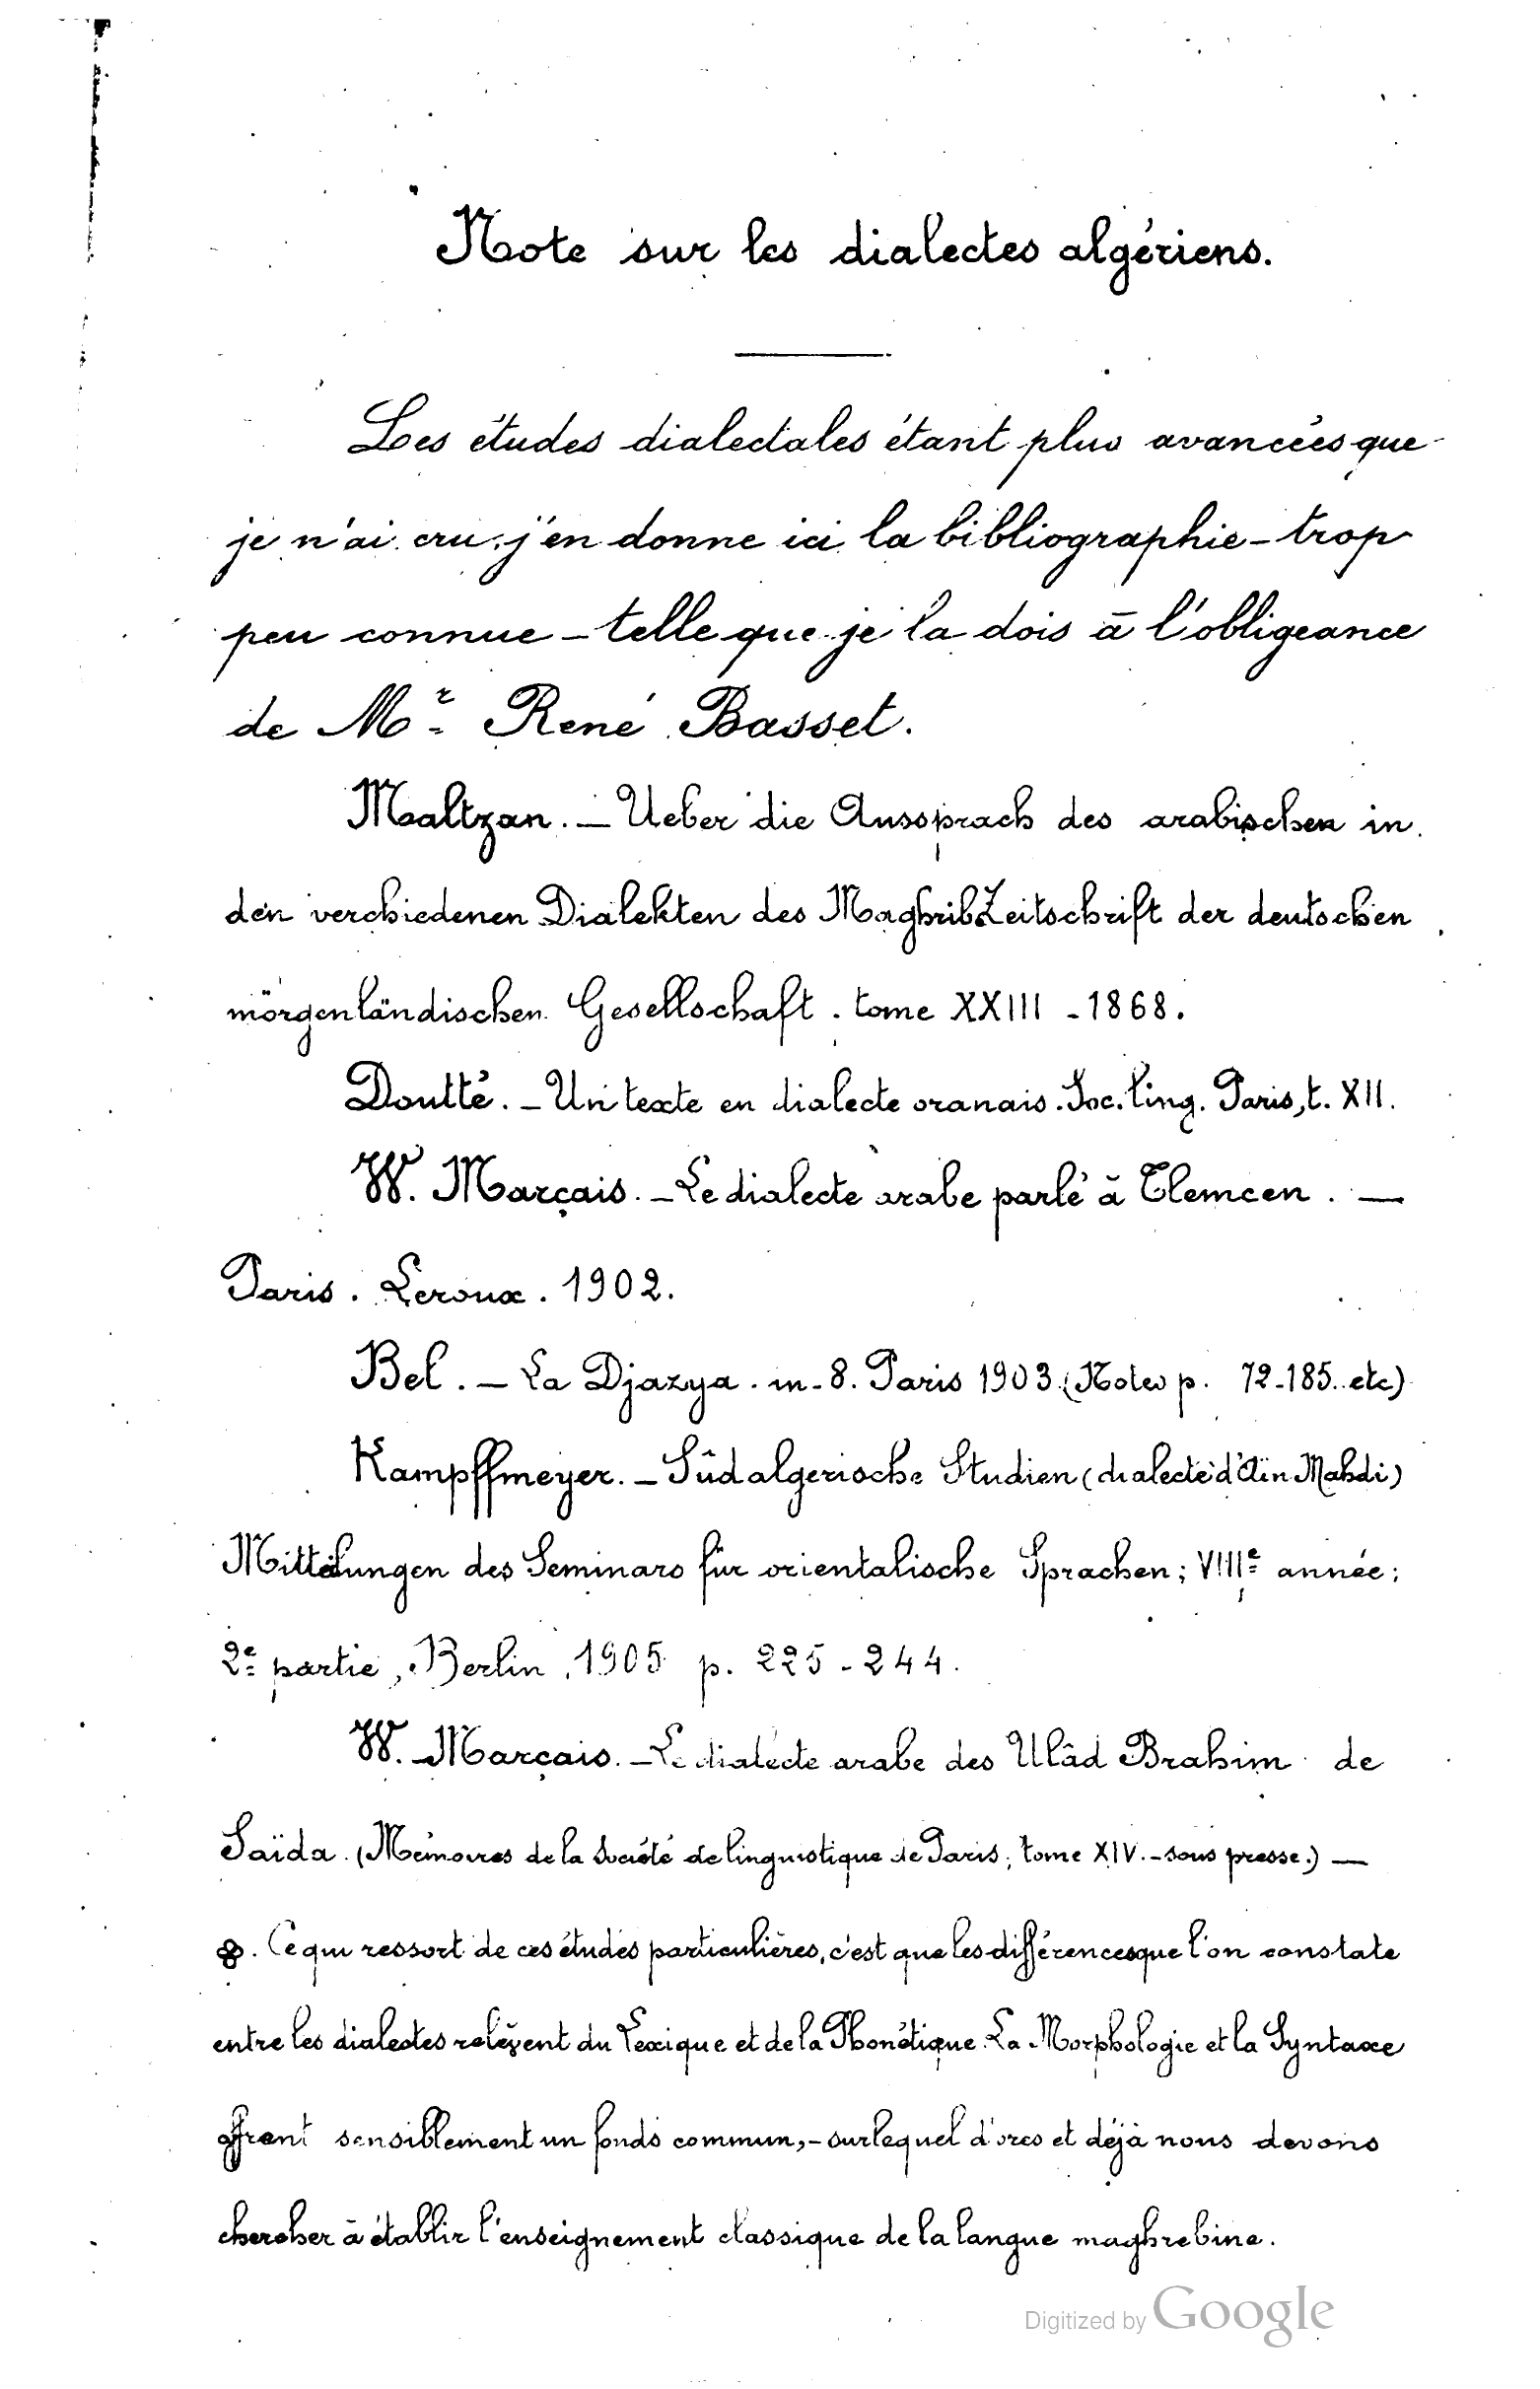 Note sur les dialectes algériens.
Les études dialectales étant plus avancées que
je n'ai cru, j'en donne ici la bibliographie - trop
peu connue - telle que je la dois à l'obligeance
de Mr René Basset.
Maltzan. — Ueber die Aussprach des arabischen in
den verchiedenen Dialekten des Maghrib Zeitschrift der deutschen
mörgenländischen Gesellschaft. tome XXIII - 1868.
Doutté. - Un texte en dialecte oranais. Soc. ling. Paris, t. XII.
W. Marçais. - Le dialecte arabe parlé à Tlemcen. —
Paris. Leroux. 1902.
Bel. — La Djazya. in-8. Paris 1903. (Notes p. 72-185. etc)
Kampffmeyer. - Südalgerische Studien (dialecte d'Aïn Mahdi)
Mitteilungen des Seminars für orientalische Sprachen; VIIIe année;
2e partie, Berlin, 1905 p. 225-244.
W. Marçais. - Le dialecte arabe des Ulâd Brahim de
Saïda. (Mémoires de la Société de linguistique de Paris; tome XIV. - sous presse.) —
Ce qui ressort de ces études particulières, c'est que les différences que l'on constate
entre les dialectes relèvent du Lexique et de la Phonétique. La Morphologie et la Syntaxe
offrent sensiblement un fonds commun, - sur lequel d'ores et déjà nous devons
chercher à établir l'enseignement classique de la langue maghrebine.
Digitized by Google